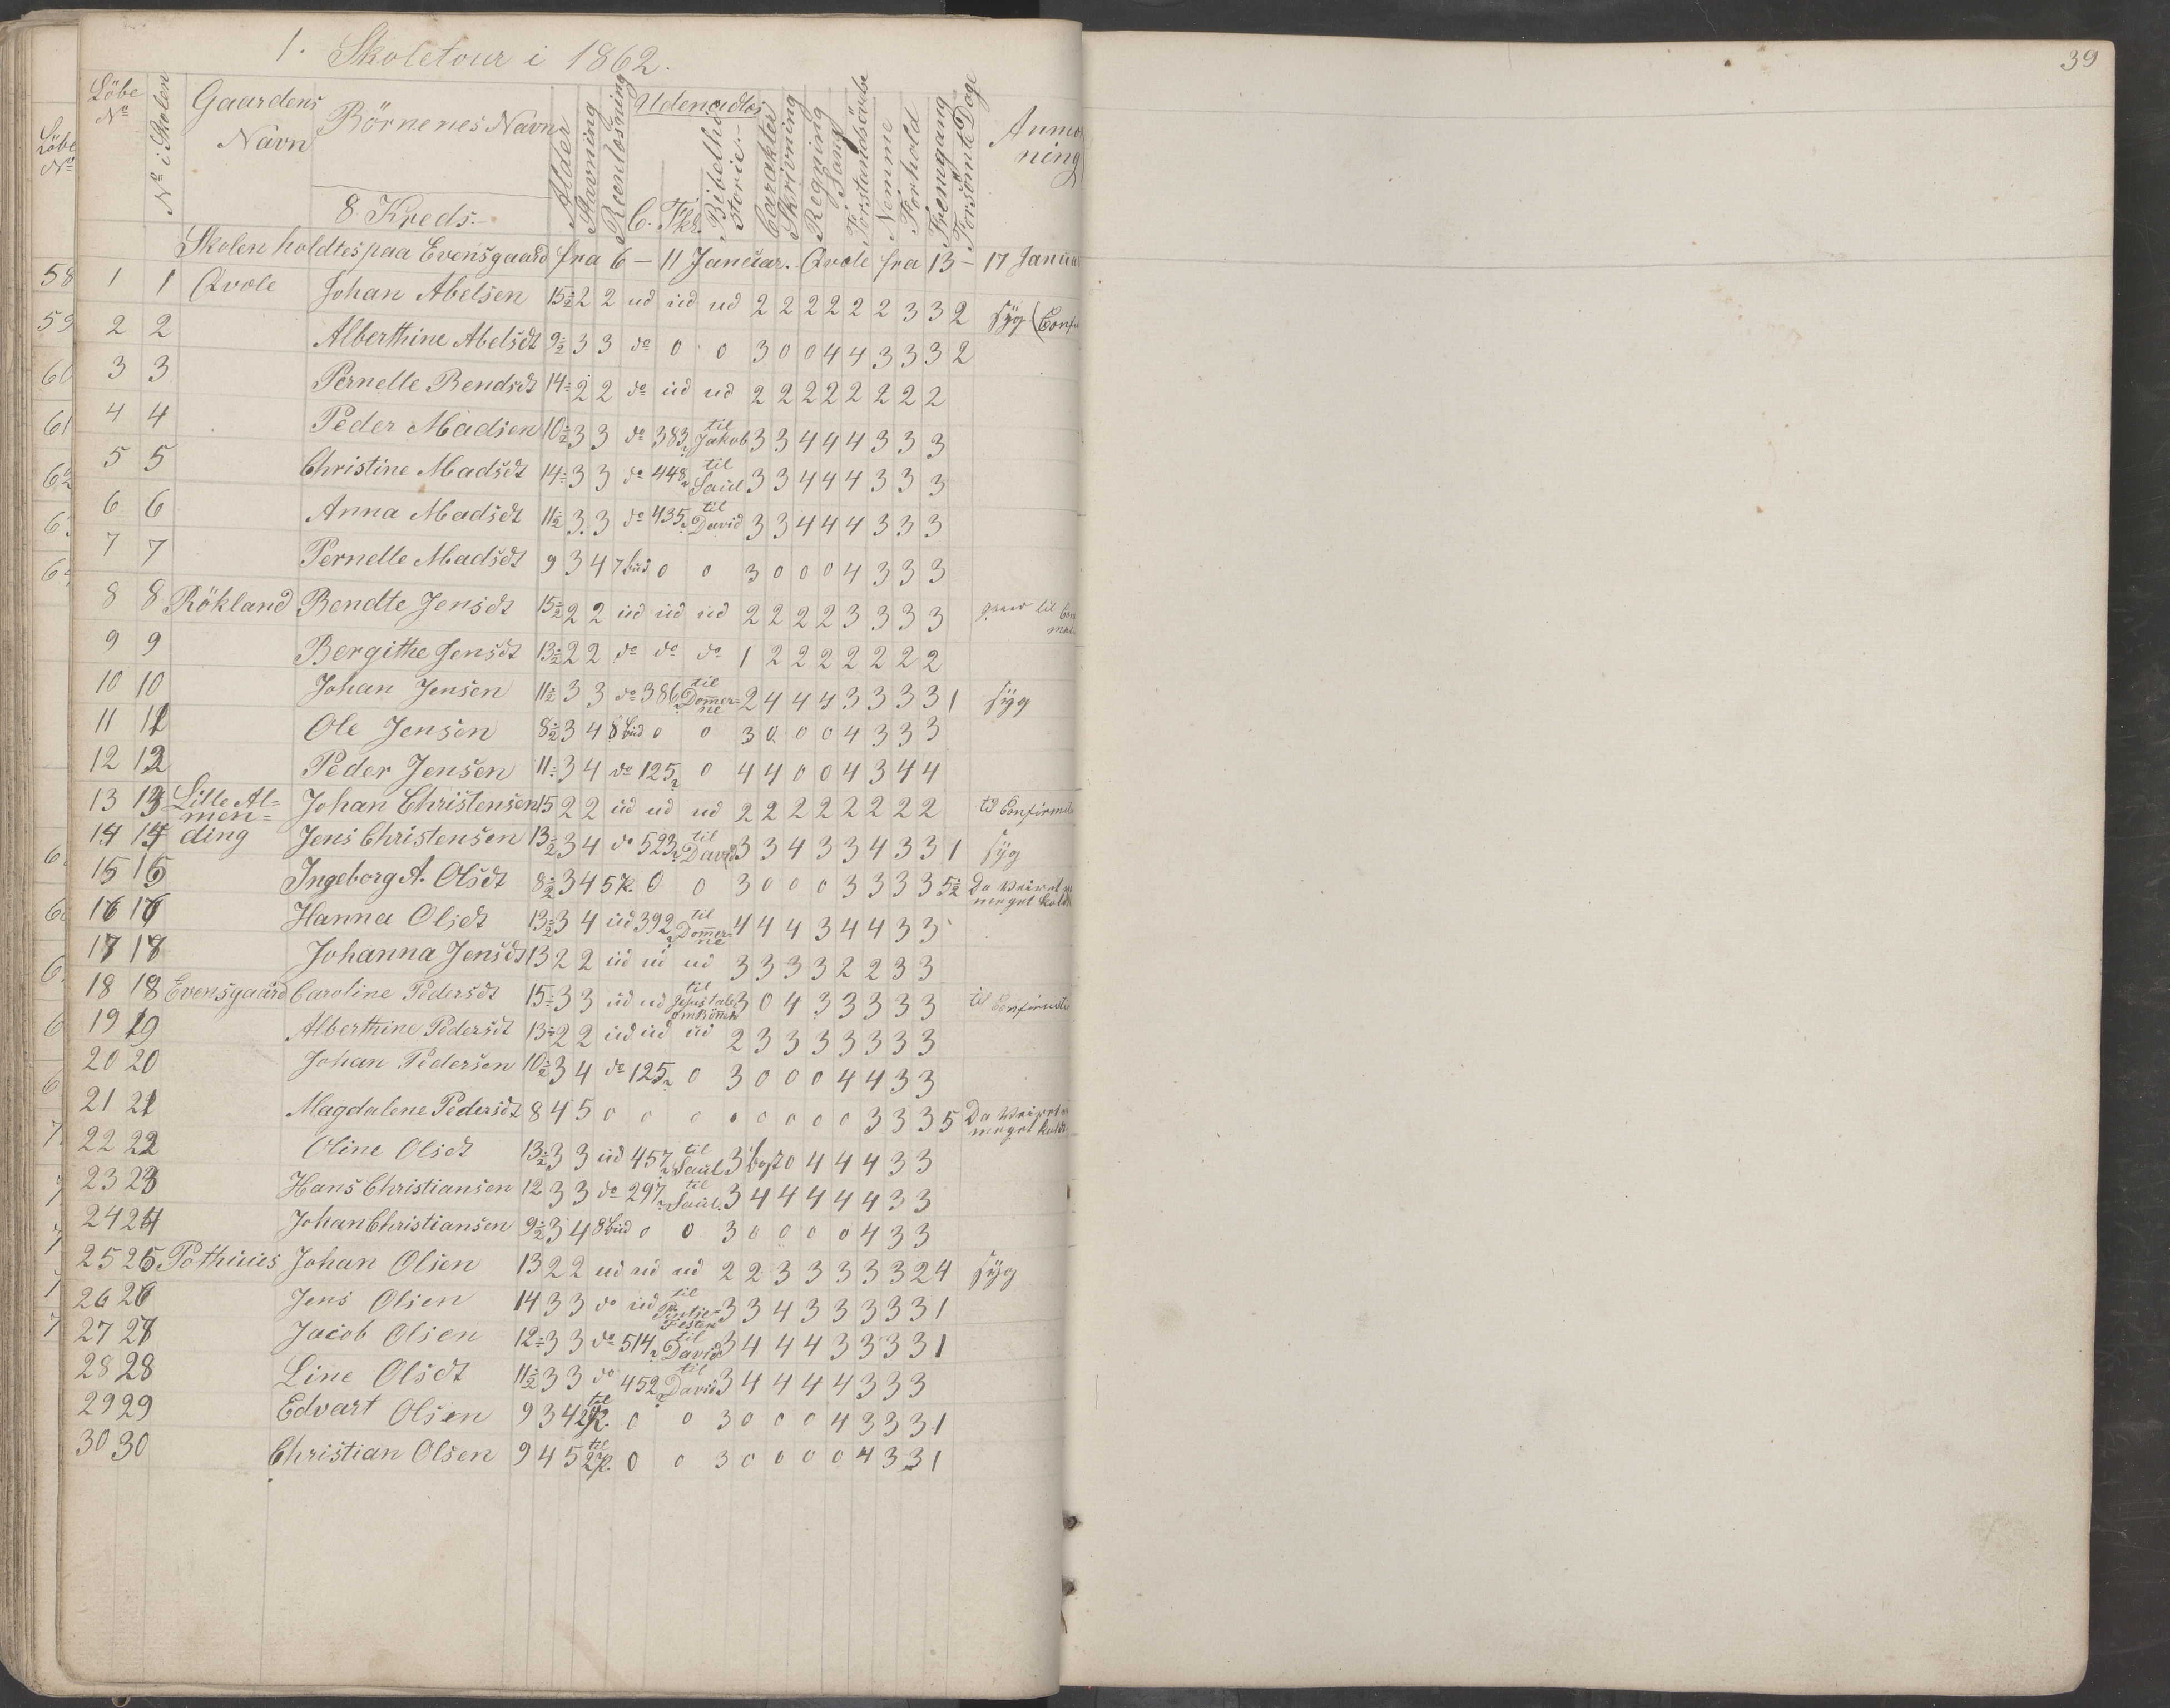 1. Skoletour i 1862.
39
Löbe No
No i Skolen
Gaardens Navn
Börnenes Navn
Alder
Stavning
Reenlæsning
Udenadlæs
C.
Fkl.
Bibelhistorie
Carakter
Skrivning
Regning
Sang
Forstandsövelse
Nemme
Forhold
Fremgang
Forsömte Dage
Anmærkning
8 Kreds.
Skolen holdtes paa Evensgaard fra 6 – 11 Januar. Qvole fra 13 – 17 Janua
1 1 Qvole Johan Abelsen 15½ 2 2 ud ud ud 2 2 2 2 2 2 3 3 2 syg (Conf
2 2 Alberthine Abelsdt 9½ 3 3 do 0 0 3 0 0 4 4 3 3 3 2
3 3 Pernelle Bendsdt 14 2 2 do ud ud 2 2 2 2 2 2 2 2
4 4 Peder Madsen 10½ 3 3 do 383 til Jakob 3 3 4 4 4 3 3 3
5 5 Christine Madsdt 14 3 3 do 448 til Saul 3 3 4 4 4 3 3 3
6 6 Anna Madsdt 11½ 3 3 do 435 til David 3 3 4 4 4 3 3 3
7 7 Pernelle Madsdt 9 3 4 7 bud 0 0 3 0 0 0 4 3 3 3
8 8 Rökland Bendte Jensdt 15½ 2 2 ud ud ud 2 2 2 2 3 3 3 3 til
9 9 Bergithe Jensdt 13½ 2 2 do do do 1 2 2 2 2 2 2 2
10 10 Johan Jensen 11½ 3 3 do 386 til Dommerne 2 4 4 4 3 3 3 3 1 syg
11 11 Ole Jensen 8½ 3 4 8 bud 0 0 3 0 0 0 4 3 3 3
12 12 Peder Jensen 11 3 4 do 125 0 4 4 0 0 4 3 4 4
13 13 Lille Al= Johan Christensen 15 2 2 ud ud ud 2 2 2 2 2 2 2 2 til Confirmat
men=
14 14 ding Jens Christensen 13½ 3 4 do 523 til David 3 3 4 3 3 4 3 3 1 syg
15 15 Ingeborg A. Olsdt 8½ 3 4 5 K. 0 0 3 0 0 0 3 3 3 3 5½ Da Veiret
meget kold
16 16 Hanna Olsdt 13½ 3 4 ud 392 til Dommerne 4 4 4 3 4 4 3 3
17 17 Johanna Jensdt 13 2 2 ud ud ud 3 3 3 3 2 2 3 3
18 18 Evensgaard Caroline Pedersdt 15 3 3 ud ud til 3 0 4 3 3 3 3 3 til Confirmat
19 19 Alberthine Pedersdt 13 2 2 ud ud ud 2 3 3 3 3 3 3 3
20 20 Johan Pedersen 10½ 3 4 do 125 0 3 0 0 0 4 4 3 3
21 21 Magdalene Pedersdt 8 4 5 0 0 0 0 0 0 0 0 3 3 3 5 Da Veiret
meget kold
22 22 Oline Olsdt 13½ 3 3 ud 457 til Saul 3 bogst 0 4 4 4 3 3
23 23 Hans Christiansen 12 3 3 do 297 til Saul 3 4 4 4 4 4 3 3
24 24 Johan Christiansen 9½ 3 4 8 bud 0 0 3 0 0 0 0 4 3 3
25 25 Pothuus Johan Olsen 13 2 2 ud ud ud 2 2 3 3 3 3 3 2 4 syg
26 26 Jens Olsen 14 3 3 do ud til Pintse-Festen 3 3 4 3 3 3 3 3 1
27 27 Jacob Olsen 12 3 3 do 514 til David 3 4 4 4 3 3 3 3 1
28 28 Line Olsdt 11½ 3 3 do 452 til David 3 4 4 4 4 3 3 3
29 29 Edvart Olsen 9 3 4 til 2 K. 0 0 3 0 0 0 4 3 3 3 1
30 30 Christian Olsen 9 4 5 til 2 K. 0 0 3 0 0 0 0 4 3 3 1
Löbe No
58
59
60
61
62